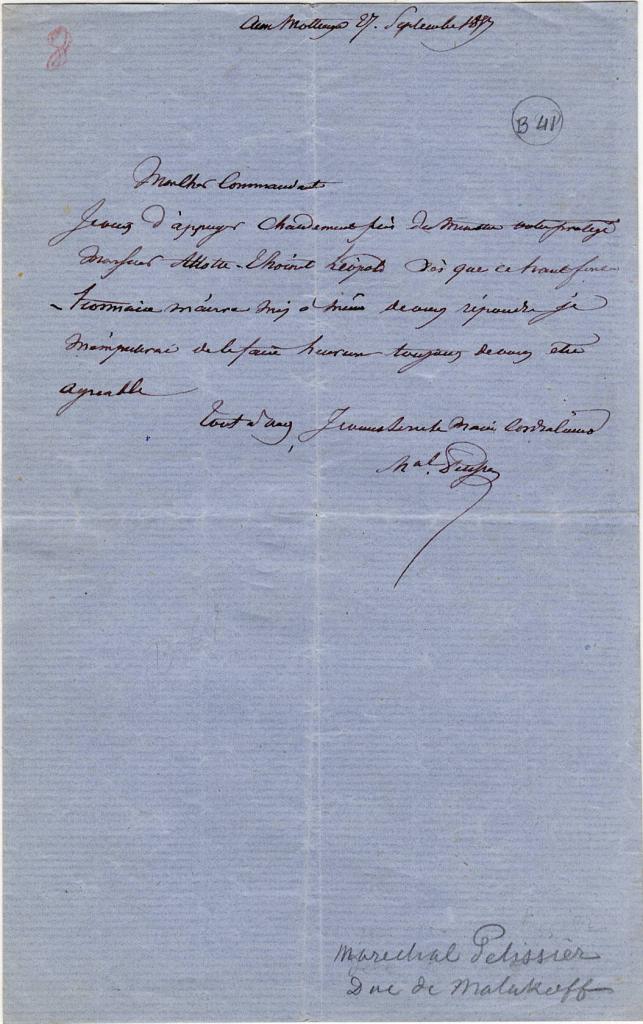 27. Septembre 1857
8
B 41
Mon cher Commandant
Je viens d'appuyer chaudement près du Ministre votre protégé
Monsieur Léopold Dès que ce haut fonc-
-tionnaire m'aura mis à même de vous répondre je
m'empresserai de le faire heureux toujours de vous être
agréable
Tout à vous, Je vous serre la main Cordialement
Mal. Pelissier
Marechal Pelissier
Duc de Malakoff